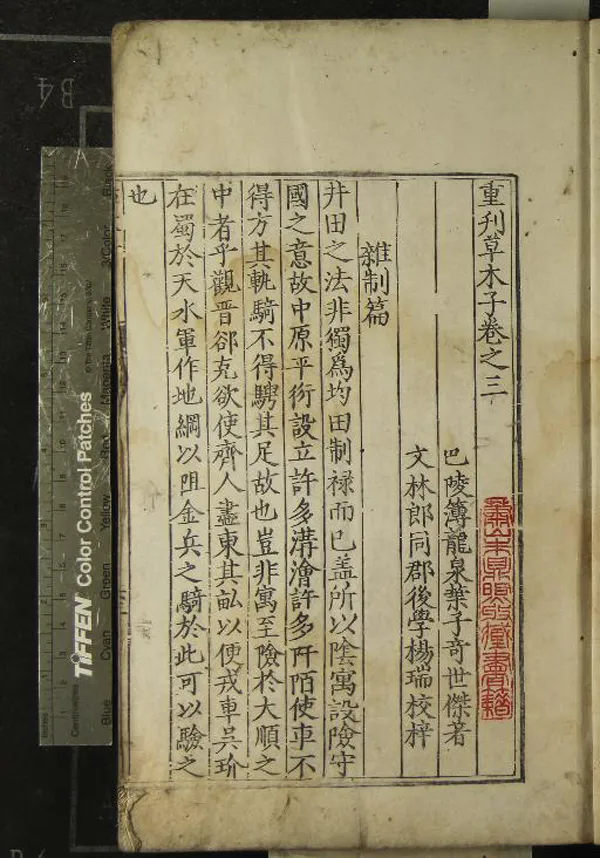 重刋草木子卷之三
巴陵簿龍泉葉子竒世傑著
文林郎同郡後學楊瑞校梓
雜制篇
井田之法非獨爲均田制祿而已盖所以隂寓設險守
國之意故中原平衍設立許多溝澮許多阡陌使車不
得方其軌騎不得騁其足故也豈非寓至險於大順之
中者乎觀晋郤克欲使齊人盡東其畝以便戎車吳玠
在蜀於天水軍作地綱以阻金兵之騎於此可以驗之
也
藏書籍
B4
TIFFEN Color Control Patches
Blue Cyan Green Yellow Red Magenta White 3/Color Black
Inches
Centimetres